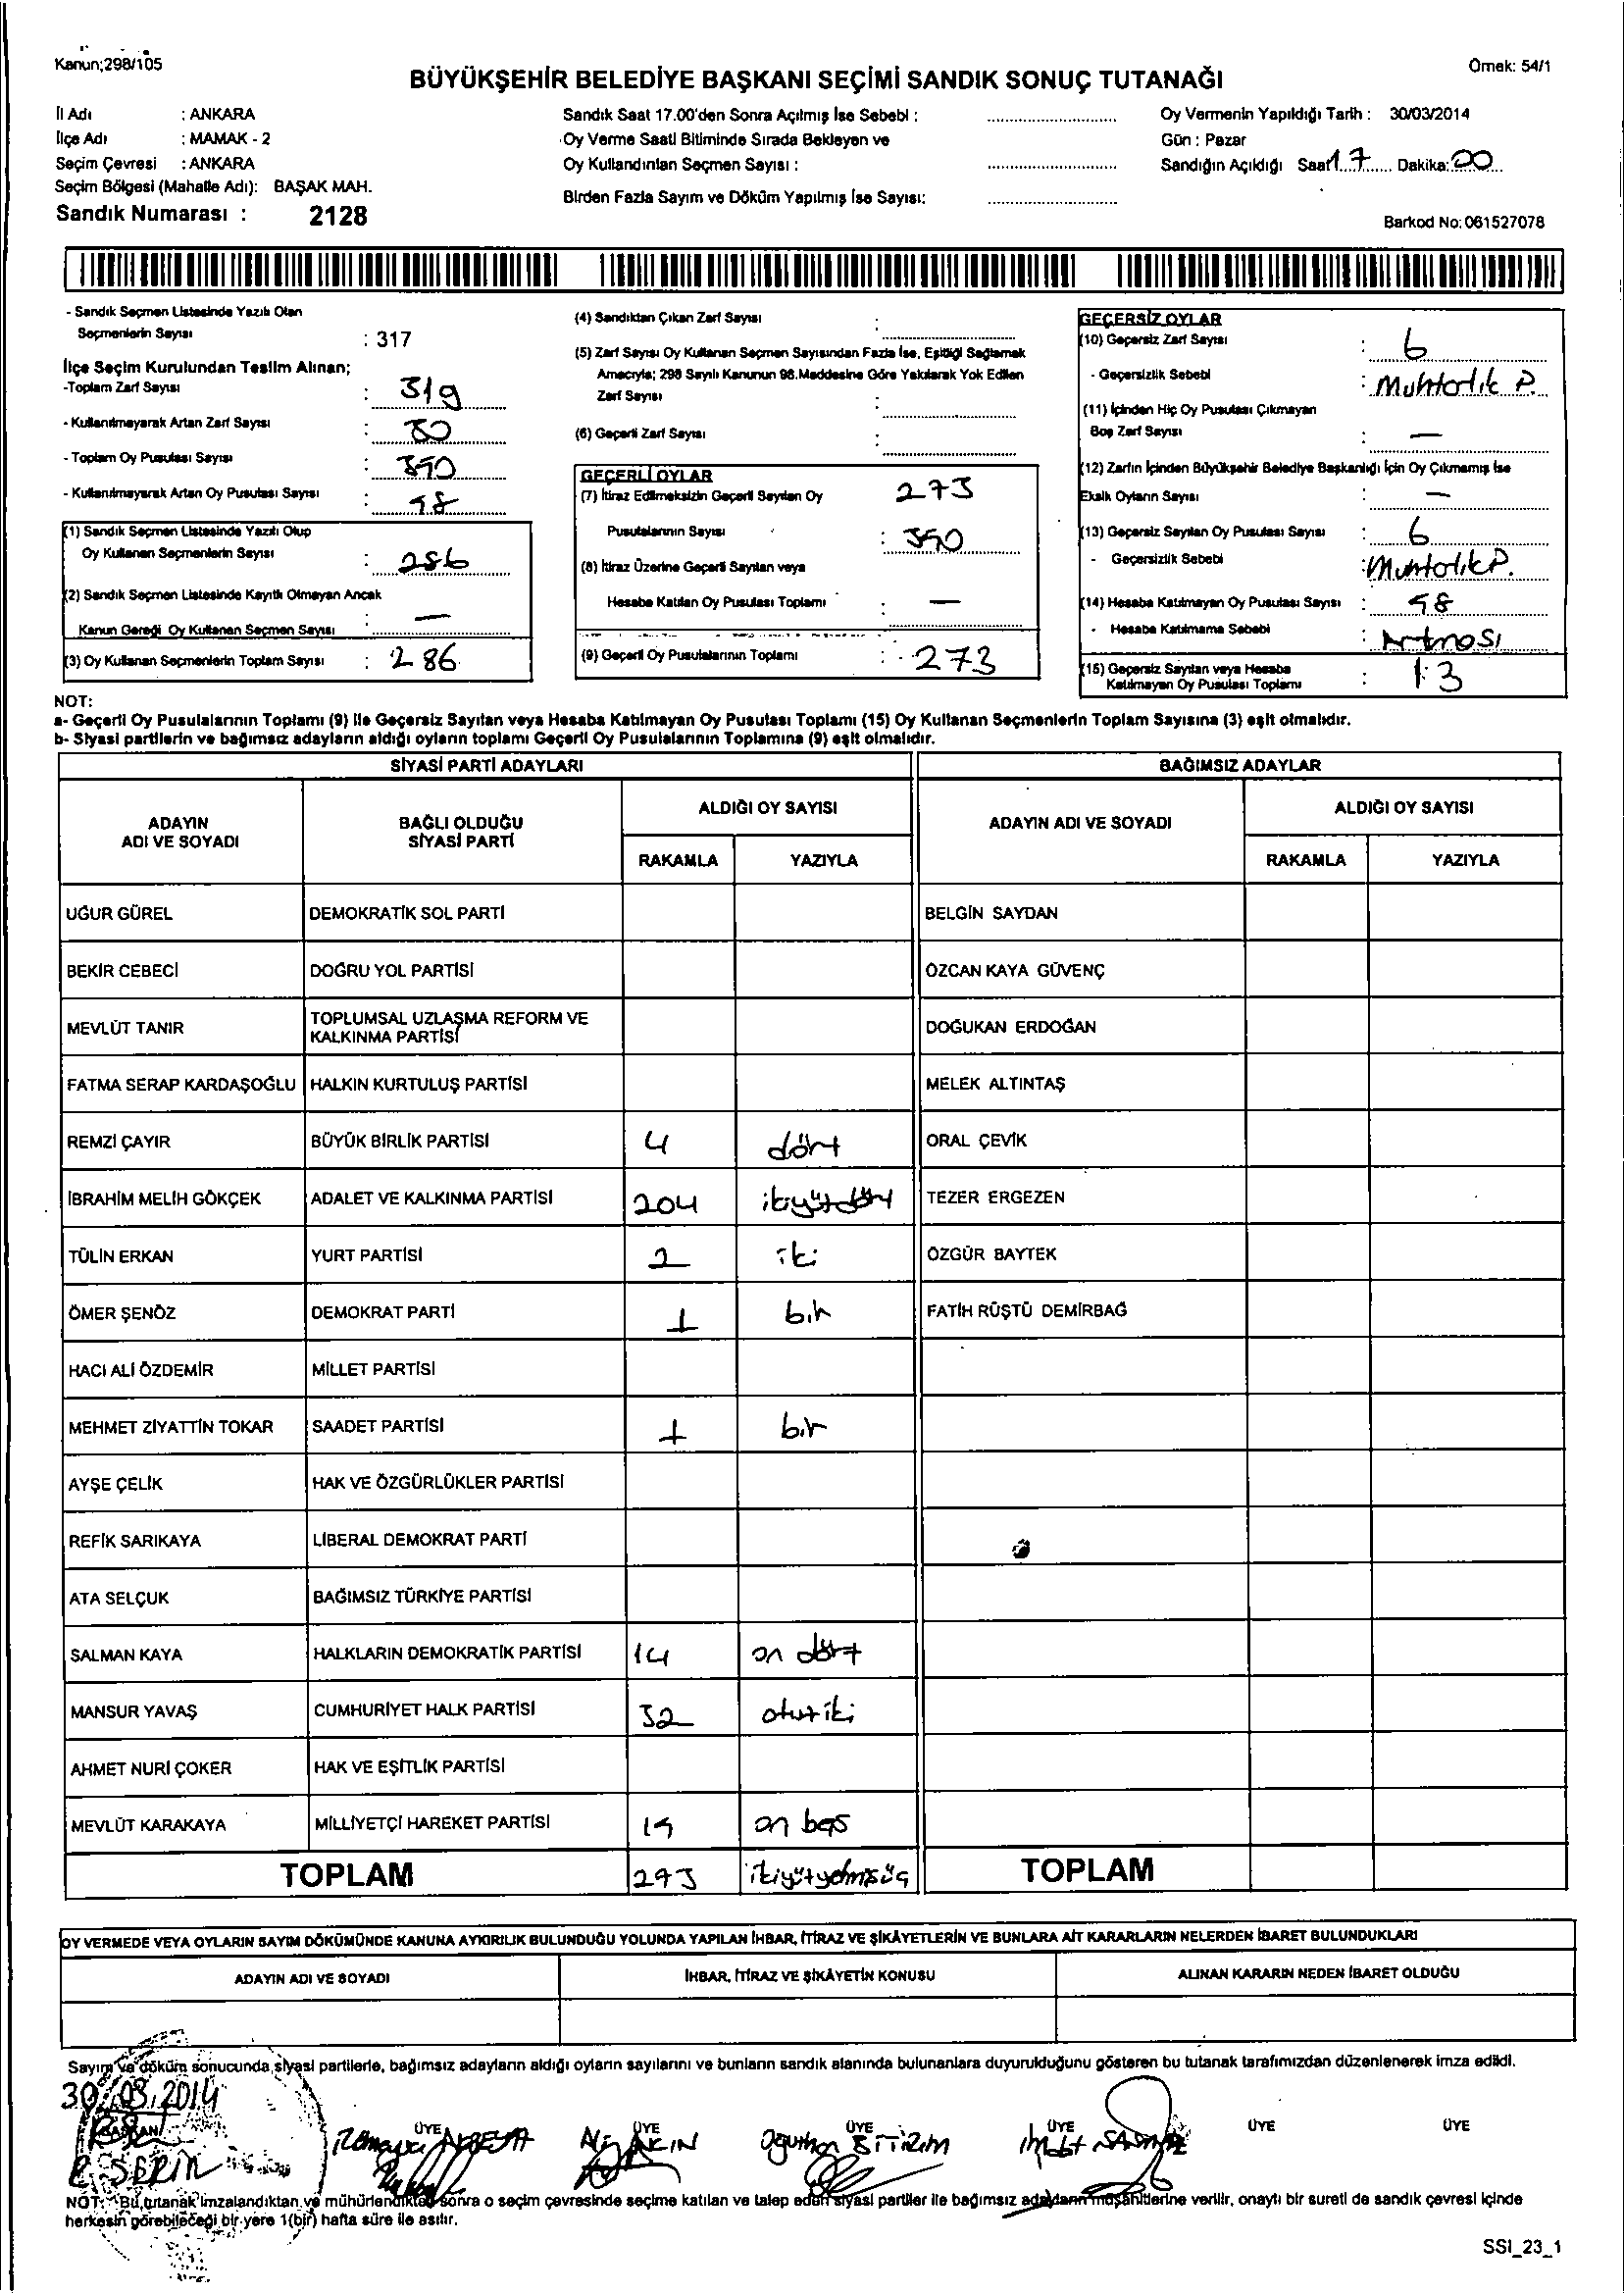 Kanun;298/105
Örnek: 54/1
BÜYÜKŞEHİR BELEDİYE BAŞKANI SEÇİMİ SANDIK SONUÇ TUTANAĞI
İl Adı : ANKARA
İlçe Adı : MAMAK - 2
Seçim Çevresi : ANKARA
Seçim Bölgesi (Mahalle Adı): BAŞAK MAH.
Sandık Numarası : 2128
Sandık Saat 17.00'den Sonra Açılmış İse Sebebi :
Oy Verme Saati Bitiminde Sırada Bekleyen ve
Oy Kullandırılan Seçmen Sayısı :
Birden Fazla Sayım ve Döküm Yapılmış İse Sayısı:
Oy Vermenin Yapıldığı Tarih : 30/03/2014
Gün : Pazar
Sandığın Açıldığı Saat 17 Dakika: 00
Barkod No: 061527078
- Sandık Seçmen Listesinde Yazılı Olan
Seçmenlerin Sayısı : 317
İlçe Seçim Kurulundan Teslim Alınan;
-Toplam Zarf Sayısı : 319
- Kullanılmayarak Artan Zarf Sayısı : 30
- Toplam Oy Pusulası Sayısı : 350
- Kullanılmayarak Artan Oy Pusulası Sayısı : 58
(1) Sandık Seçmen Listesinde Yazılı Olup
Oy Kullanan Seçmenlerin Sayısı : 286
(2) Sandık Seçmen Listesinde Kayıtlı Olmayan Ancak
Kanun Gereği Oy Kullanan Seçmen Sayısı : —
(3) Oy Kullanan Seçmenlerin Toplam Sayısı : 286
(4) Sandıktan Çıkan Zarf Sayısı :
(5) Zarf Sayısı Oy Kullanan Seçmen Sayısından Fazla İse, Eşitliği Sağlamak
Amacıyla; 298 Sayılı Kanunun 98.Maddesine Göre Yakılarak Yok Edilen
Zarf Sayısı :
(6) Geçerli Zarf Sayısı :
GEÇERLİ OYLAR
(7) İtiraz Edilmeksizin Geçerli Sayılan Oy 273
Pusulalarının Sayısı : 350
(8) İtiraz Üzerine Geçerli Sayılan veya
Hesaba Katılan Oy Pusulası Toplamı : —
(9) Geçerli Oy Pusulalarının Toplamı : 273
GEÇERSİZ OYLAR
(10) Geçersiz Zarf Sayısı : 6
- Geçersizlik Sebebi : Muhtarlık P.
(11) İçinden Hiç Oy Pusulası Çıkmayan
Boş Zarf Sayısı : —
(12) Zarfın İçinden Büyükşehir Belediye Başkanlığı İçin Oy Çıkmamış İse
Eksik Oyların Sayısı : —
(13) Geçersiz Sayılan Oy Pusulası Sayısı : 6
- Geçersizlik Sebebi : Muhtarlık P.
(14) Hesaba Katılmayan Oy Pusulası Sayısı : 58
- Hesaba Katılmama Sebebi : Artması
(15) Geçersiz Sayılan veya Hesaba
Katılmayan Oy Pusulası Toplamı : 13
NOT:
a- Geçerli Oy Pusulalarının Toplamı (9) ile Geçersiz Sayılan veya Hesaba Katılmayan Oy Pusulası Toplamı (15) Oy Kullanan Seçmenlerin Toplam Sayısına (3) eşit olmalıdır.
b- Siyasi partilerin ve bağımsız adayların aldığı oyların toplamı Geçerli Oy Pusulalarının Toplamına (9) eşit olmalıdır.
SİYASİ PARTİ ADAYLARI
BAĞIMSIZ ADAYLAR
ADAYIN ADI VE SOYADI
BAĞLI OLDUĞU SİYASİ PARTİ
ALDIĞI OY SAYISI
RAKAMLA YAZIYLA
ADAYIN ADI VE SOYADI
ALDIĞI OY SAYISI
RAKAMLA YAZIYLA
UĞUR GÜREL DEMOKRATİK SOL PARTİ BELGİN SAYDAN
BEKİR CEBECİ DOĞRU YOL PARTİSİ ÖZCAN KAYA GÜVENÇ
MEVLÜT TANIR TOPLUMSAL UZLAŞMA REFORM VE KALKINMA PARTİSİ DOĞUKAN ERDOĞAN
FATMA SERAP KARDAŞOĞLU HALKIN KURTULUŞ PARTİSİ MELEK ALTINTAŞ
REMZİ ÇAYIR BÜYÜK BİRLİK PARTİSİ 4 dört ORAL ÇEVİK
İBRAHİM MELİH GÖKÇEK ADALET VE KALKINMA PARTİSİ 204 ikiyüzdört TEZER ERGEZEN
TÜLİN ERKAN YURT PARTİSİ 2 iki ÖZGÜR BAYTEK
ÖMER ŞENÖZ DEMOKRAT PARTİ 1 bir FATİH RÜŞTÜ DEMİRBAĞ
HACI ALİ ÖZDEMİR MİLLET PARTİSİ
MEHMET ZİYATTİN TOKAR SAADET PARTİSİ 1 bir
AYŞE ÇELİK HAK VE ÖZGÜRLÜKLER PARTİSİ
REFİK SARIKAYA LİBERAL DEMOKRAT PARTİ
ATA SELÇUK BAĞIMSIZ TÜRKİYE PARTİSİ
SALMAN KAYA HALKLARIN DEMOKRATİK PARTİSİ 14 on dört
MANSUR YAVAŞ CUMHURİYET HALK PARTİSİ 32 otuziki
AHMET NURİ ÇOKER HAK VE EŞİTLİK PARTİSİ
MEVLÜT KARAKAYA MİLLİYETÇİ HAREKET PARTİSİ 15 on beş
TOPLAM 273 ikiyüzyetmişüç TOPLAM
OY VERMEDE VEYA OYLARIN SAYIM DÖKÜMÜNDE KANUNA AYKIRILIK BULUNDUĞU YOLUNDA YAPILAN İHBAR, İTİRAZ VE ŞİKÂYETLERİN VE BUNLARA AİT KARARLARIN NELERDEN İBARET BULUNDUKLARI
ADAYIN ADI VE SOYADI İHBAR, İTİRAZ VE ŞİKÂYETİN KONUSU ALINAN KARARIN NEDEN İBARET OLDUĞU
Sayım ve döküm sonucunda siyasi partilerle, bağımsız adayların aldığı oyların sayılarını ve bunların sandık alanında bulunanlara duyurulduğunu gösteren bu tutanak tarafımızdan düzenlenerek imza edildi.
30/03/2014
BAŞKAN ÜYE ÜYE ÜYE ÜYE ÜYE ÜYE
R. SERİN Ramazan AKBETA Ali AKIN Oğuzhan BİTİRİM
NOT: Bu tutanak imzalandıktan ve mühürlendikten sonra o seçim çevresinde seçime katılan ve talep eden siyasi partiler ile bağımsız adayların müşahitlerine verilir, onaylı bir sureti de sandık çevresi içinde
herkesin görebileceği bir yere 1(bir) hafta süre ile asılır.
SSI_23_1